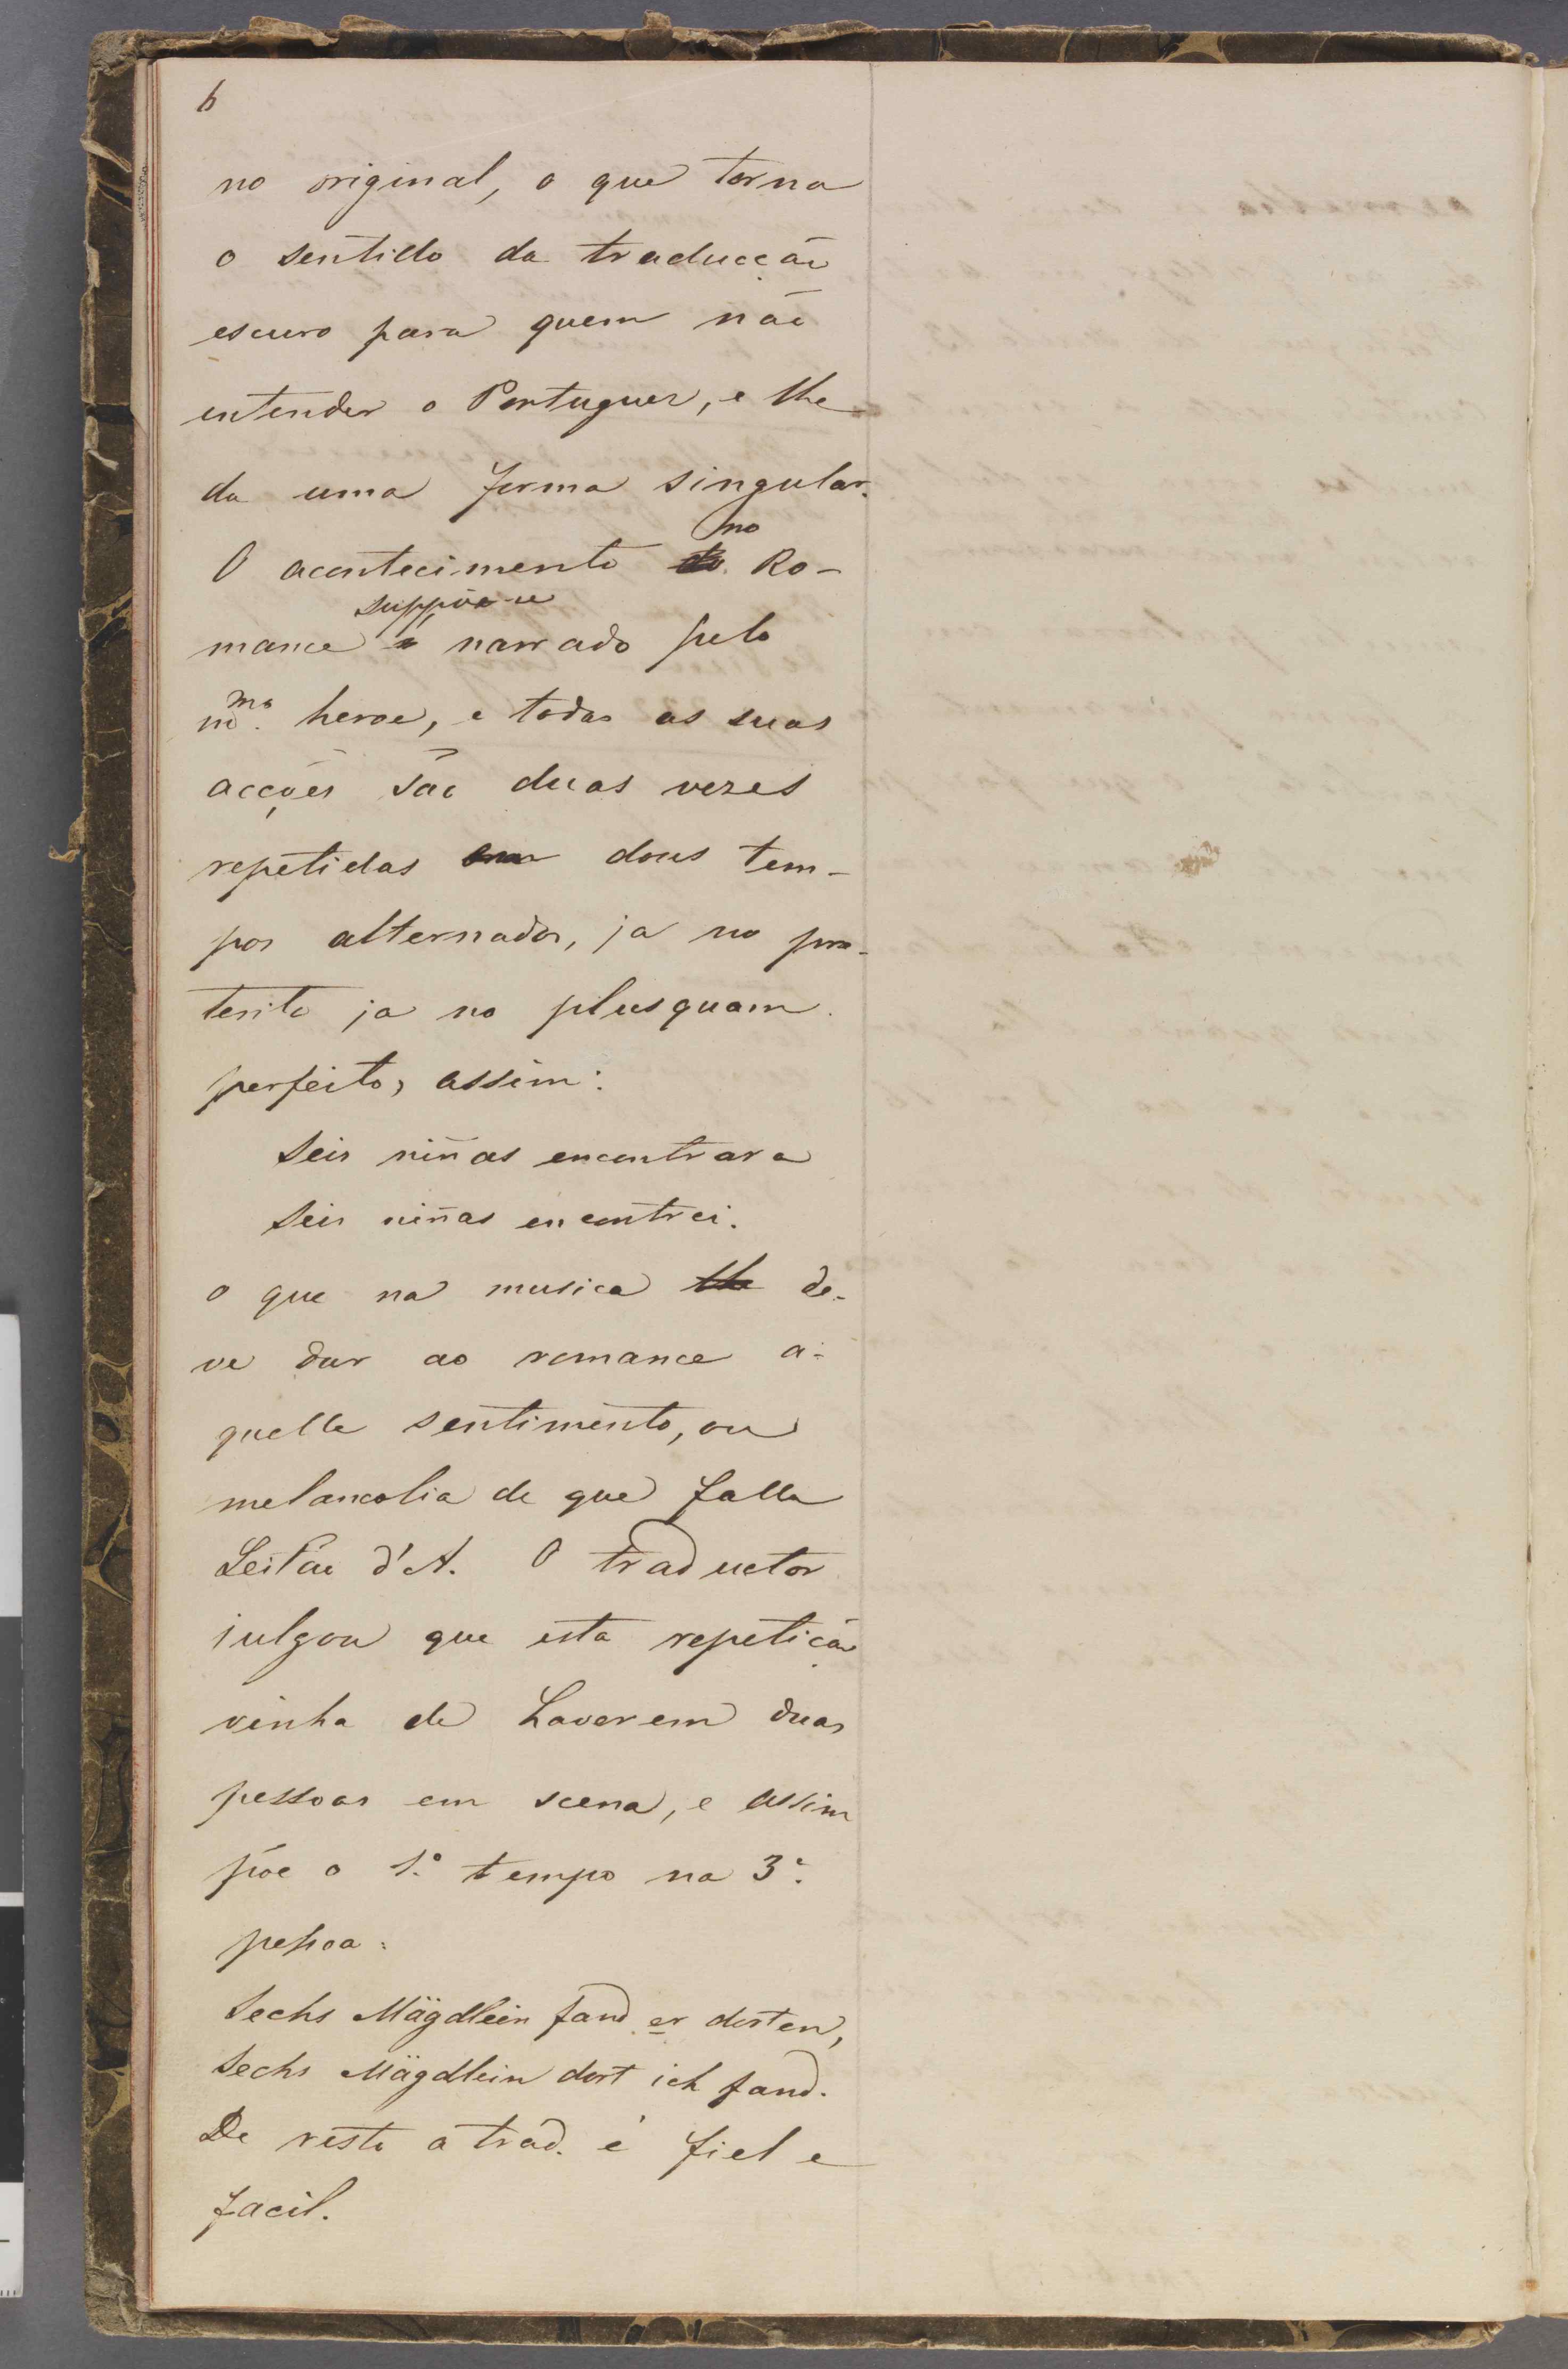 6
no original, o que torna
o sentido da traducção
escuro para quem não
entender o Portuguez, e lhe
da uma forma singular.
no
O acontecimento do Ro-
suppõe-se
mance é narrado pelo
mmo. heroe, e todas as suas
acções são duas vezes
repetidas em dous tem-
pos alternados, ja no pre-
terito ja no plusquam
perfeito, assim:
Seis niñas encontrara
Seis niñas encontrei.
o que na musica lhe de-
ve dar ao romance a-
quelle sentimento, ou
melancolia de que falla
Leitão d'A. O traductor
julgou que esta repetição
vinha de haverem duas
pessoas em scena, e assim
põe o 1.º tempo na 3.ª
pessoa:
Sechs Mägdlein fand er dorten,
Sechs Mägdlein dort ich fand.
De resto a trad. é fiel e
facil.